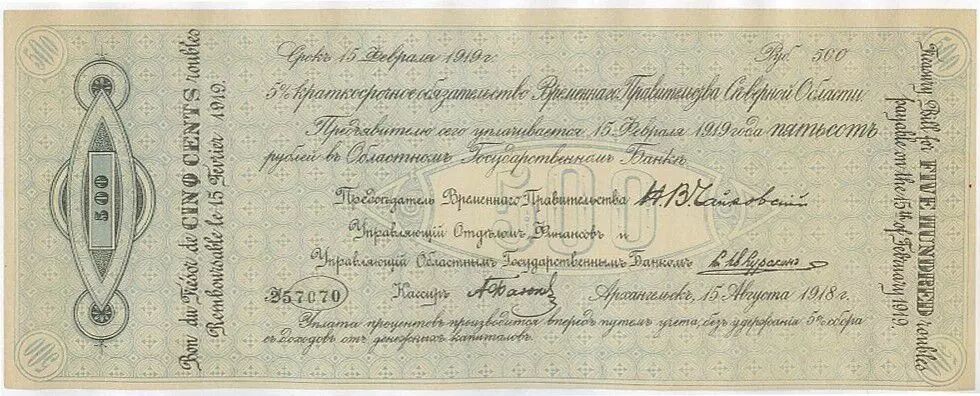 500
500
Срокъ 15 Февраля 1919 г.
Руб. 500
5% краткосрочное обязательство Временнаго Правительства Сѣверной Области.
Предъявителю сего уплачивается 15 Февраля 1919 года пятьсотъ
рублей въ Областномъ Государственномъ Банкѣ.
500
Предсѣдатель Временнаго Правительства Н. В. Чайковскій
Управляющій Отдѣломъ Финансовъ и
Управляющій Областнымъ Государственнымъ Банкомъ
№ 257070
Кассиръ
Архангельскъ, 15 Августа 1918 г.
Уплата процентовъ производится впередъ путемъ учета, безъ удержанія 5% сбора
съ доходовъ отъ денежныхъ капиталовъ.
500
Bon du Trésor de CINQ CENTS roubles
Remboursable le 15 Fevrier 1919.
Treasury Bill for FIVE HUNDRED roubles
payable on the 15th of February 1919.
500
500